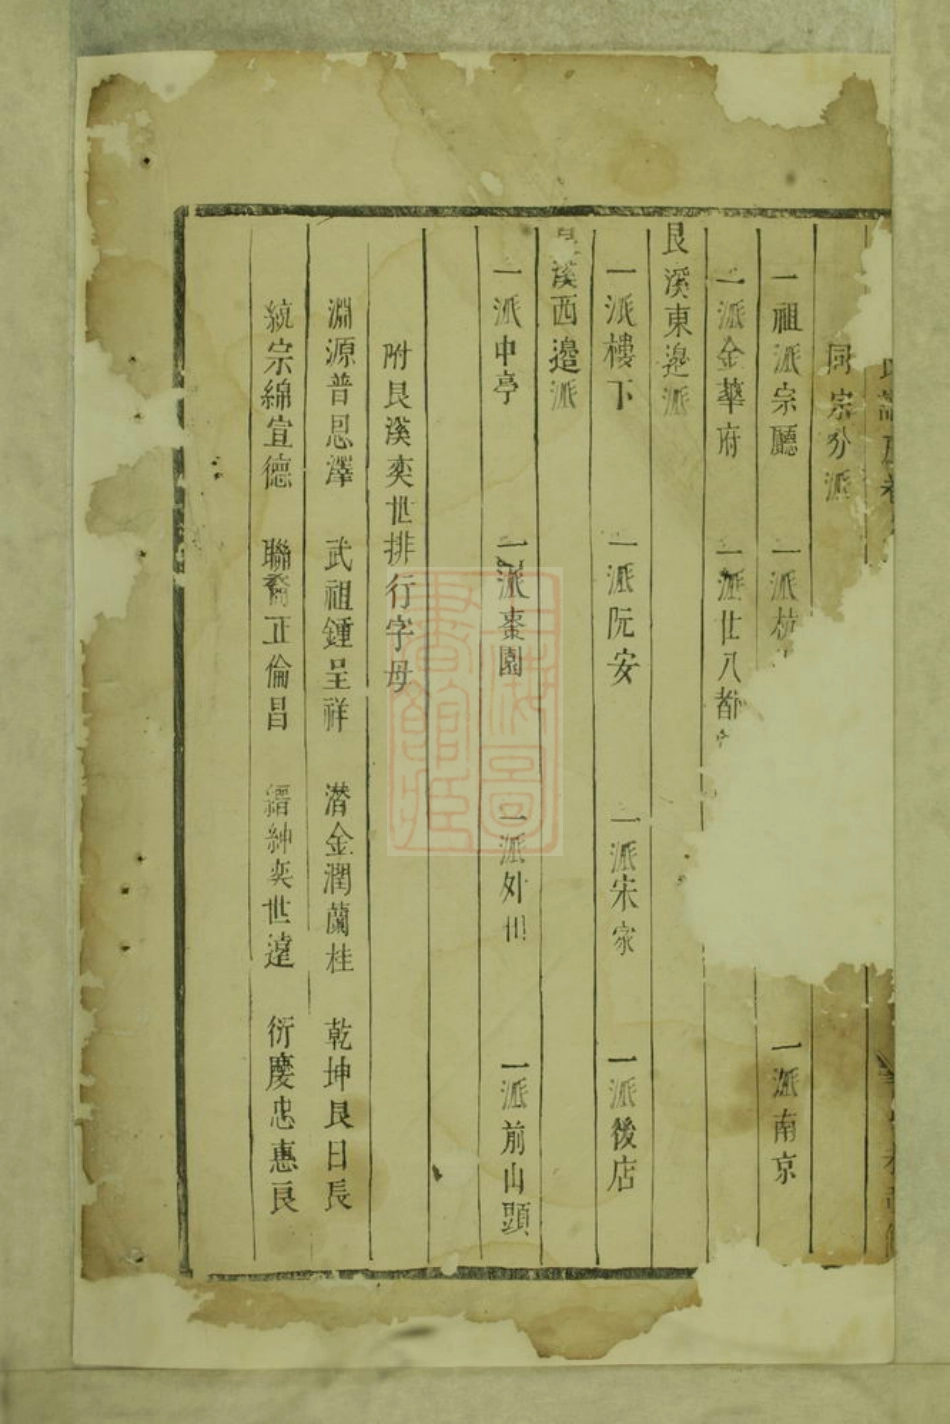 同宗分派
一祖派宗廳 一派杭 一派南京
一派金華府 一派廿八都
艮溪東邉派
一派樓下 一派阮安 一派宋家 一派後店
溪西邉派
一派中亭 一派棗園 一派外 一派前山頭
附艮溪奕世排行字母
淵源普恩澤 武祖鍾呈祥 濳金潤蘭桂 乾坤艮日長
統宗綿宣德 聯裔正倫昌 縉紳奕世遠 衍慶忠惠良